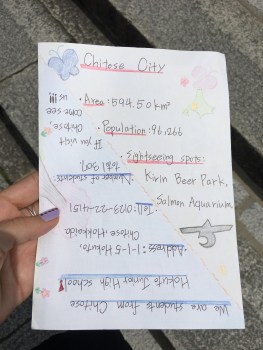 Chitese City
・Area : 594.50 km²
・Population : 96,266
・Sightseeing spots:
Kirin Beer Park,
Salmon Aquarium
We are students from Chitose
Hokuto Junior High school!
・Address : 1-1-5 Hokuto,
Chitose Hokkaido
・Tel : 0123-22-4151
・Number of students:
total 307
If you visit
Chitose,
come see
us!!!